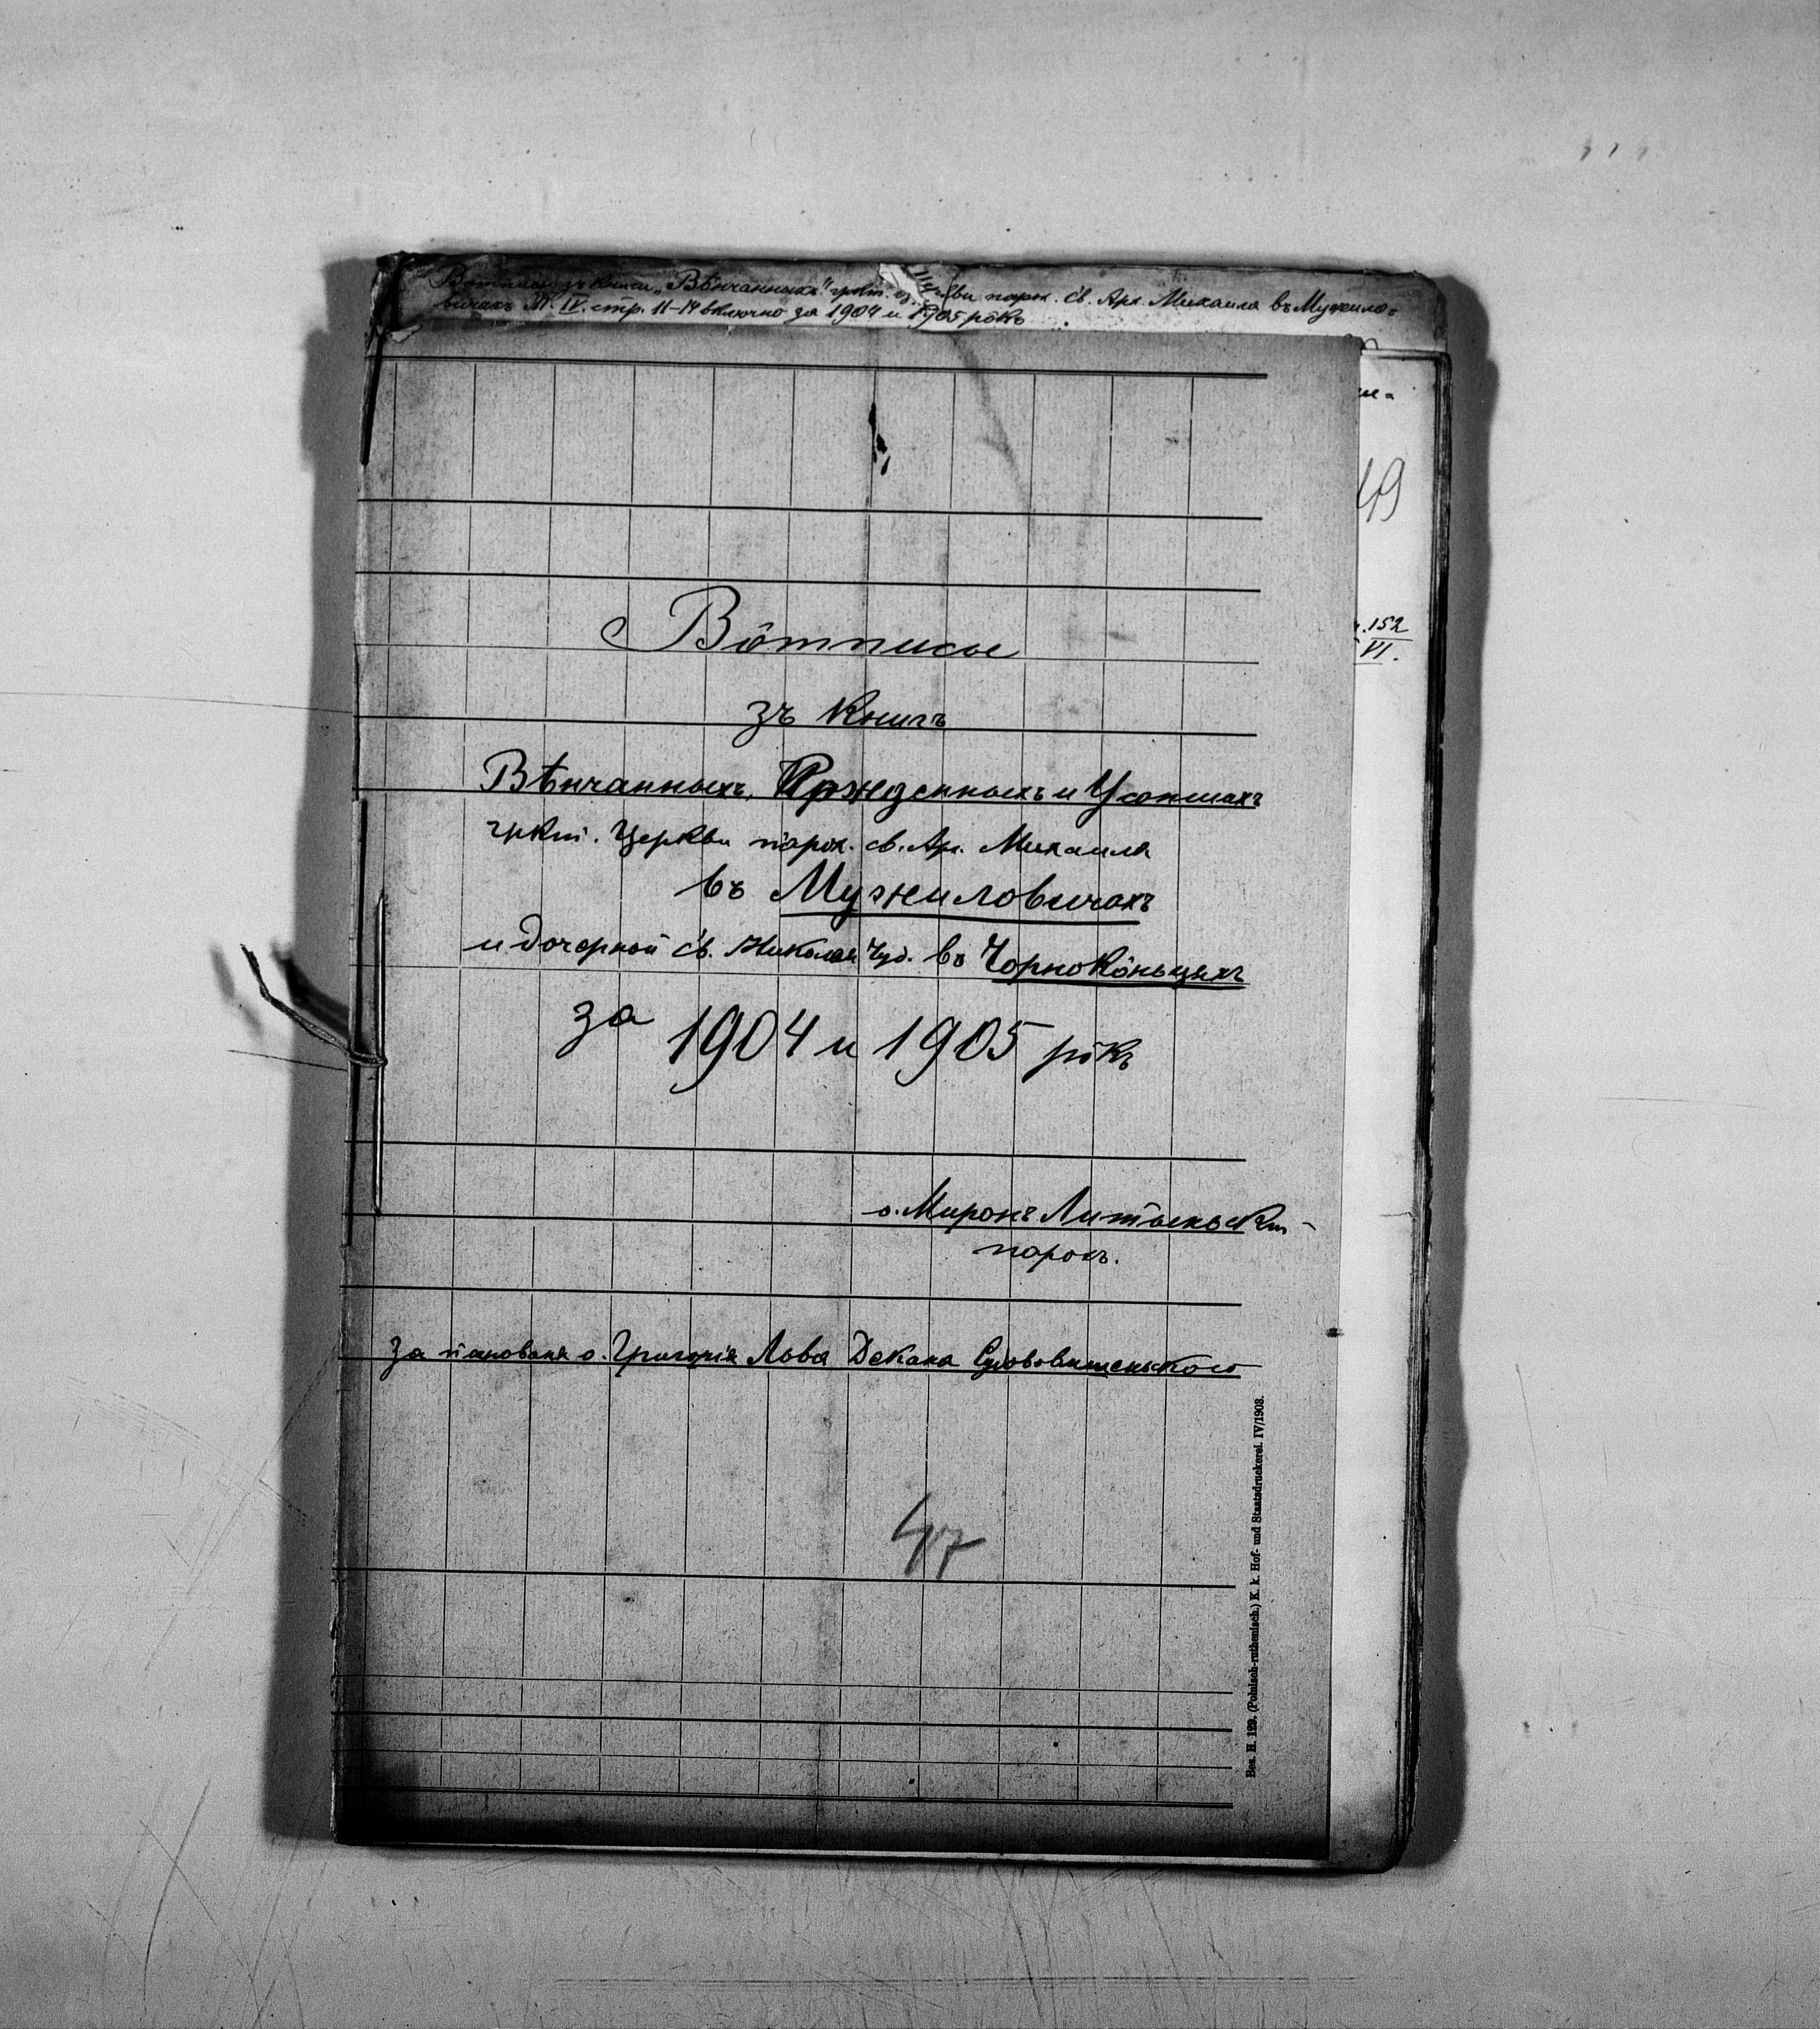 Вôтписы зъ книги „Вѣнчанныхъ" гркт. парох. св. Арх. Михаила въ Мужило-
вичахъ Т. IV. стр. 11-14 включно за 1904 и 1905 рôкъ
49
152
VI.
Вôтписы
зъ Книгъ
Вѣнчанныхъ, Рожденныхъ и Усопшихъ
гркт. Церкви парох. св. Ар. Михаила
въ Мужиловичахъ
и дочерной св. Николая Чуд. въ Чорнокôньцяхъ
за 1904 и 1905 рôкъ
о. Миронъ
парохъ.
За пановання о. Григорія Льва Декана Судововишенського
47
Bes. H. 129. (Polnisch-ruthenisch.) K. k. Hof- und Staatsdruckerei. IV/1903.